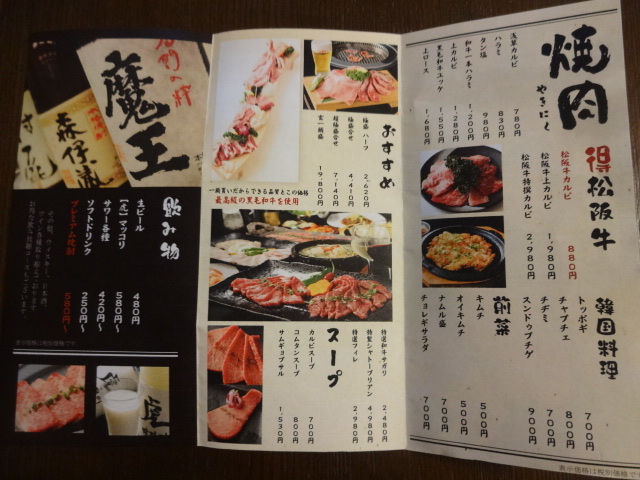 焼肉
やきにく
浅草カルビ 780円
ハラミ 830円
タン塩 980円
和牛一本ハラミ 1,200円
上カルビ 1,280円
黒毛和牛ユッケ 1,550円
上ロース 1,680円
得 松阪牛
松阪牛カルビ 880円
松阪牛上カルビ 1,980円
松阪牛特撰カルビ 2,980円
韓国料理
トッポギ 700円
チャプチェ 800円
チヂミ 700円
スンドゥブチゲ 900円
前菜
キムチ 500円
オイキムチ 500円
ナムル盛 700円
チョレギサラダ 700円
表示価格は税別価格です
おすすめ
極盛 ハーフ 2,620円
極盛合せ 4,410円
超極盛合せ 7,140円
玄一頭盛 19,800円
一頭買いだからできる品質とこの価格
最高級の黒毛和牛を使用
特選和牛サガリ 2,480円
特製シャトーブリアン 4,980円
特選フィレ 2,980円
スープ
カルビスープ 700円
コムタンスープ 800円
サムギョプサル 1,530円
魔王
森伊蔵
飲み物
生ビール 480円
【虎】マッコリ 580円〜
サワー各種 420円
ソフトドリンク 250円
プレミアム焼酎 580円〜
表示価格は税別価格です